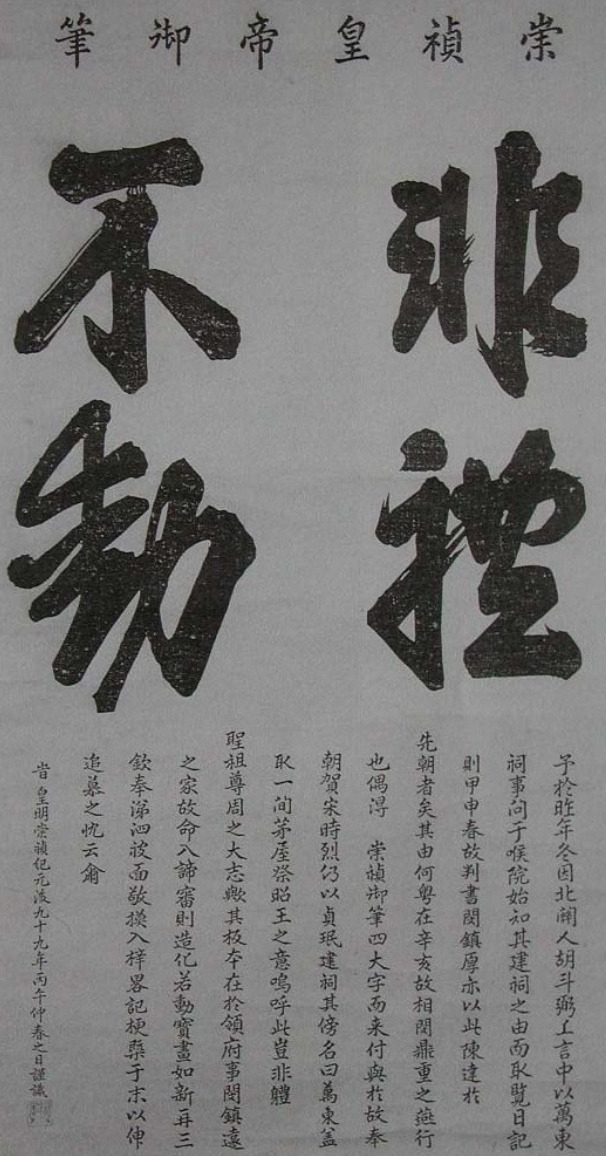 崇禎皇帝御筆
非禮
不動
予於昨年冬因北關人胡斗弼上言中以萬東
祠事問于喉院始知其建祠之由而取覽日記
則甲申春故判書閔鎮厚亦以此陳達於
先朝者矣其由何粤在辛亥故相閔鼎重之燕行
也偶淂 崇禎御筆四大字而来付與於故奉
朝賀宋時烈仍以貞珉建祠其傍名曰萬東盖
取一間茅屋祭昭王之意嗚呼此豈非軆
聖祖尊周之大志歟其板夲在於領府事閔鎮遠
之家故命入諦審則造化若動寳畫如新再三
欽奉涕泗被面敬摸入梓畧記梗槩于末以伸
追慕之忱云爾
皇明崇禎紀元後九十九年丙午仲春之日謹識